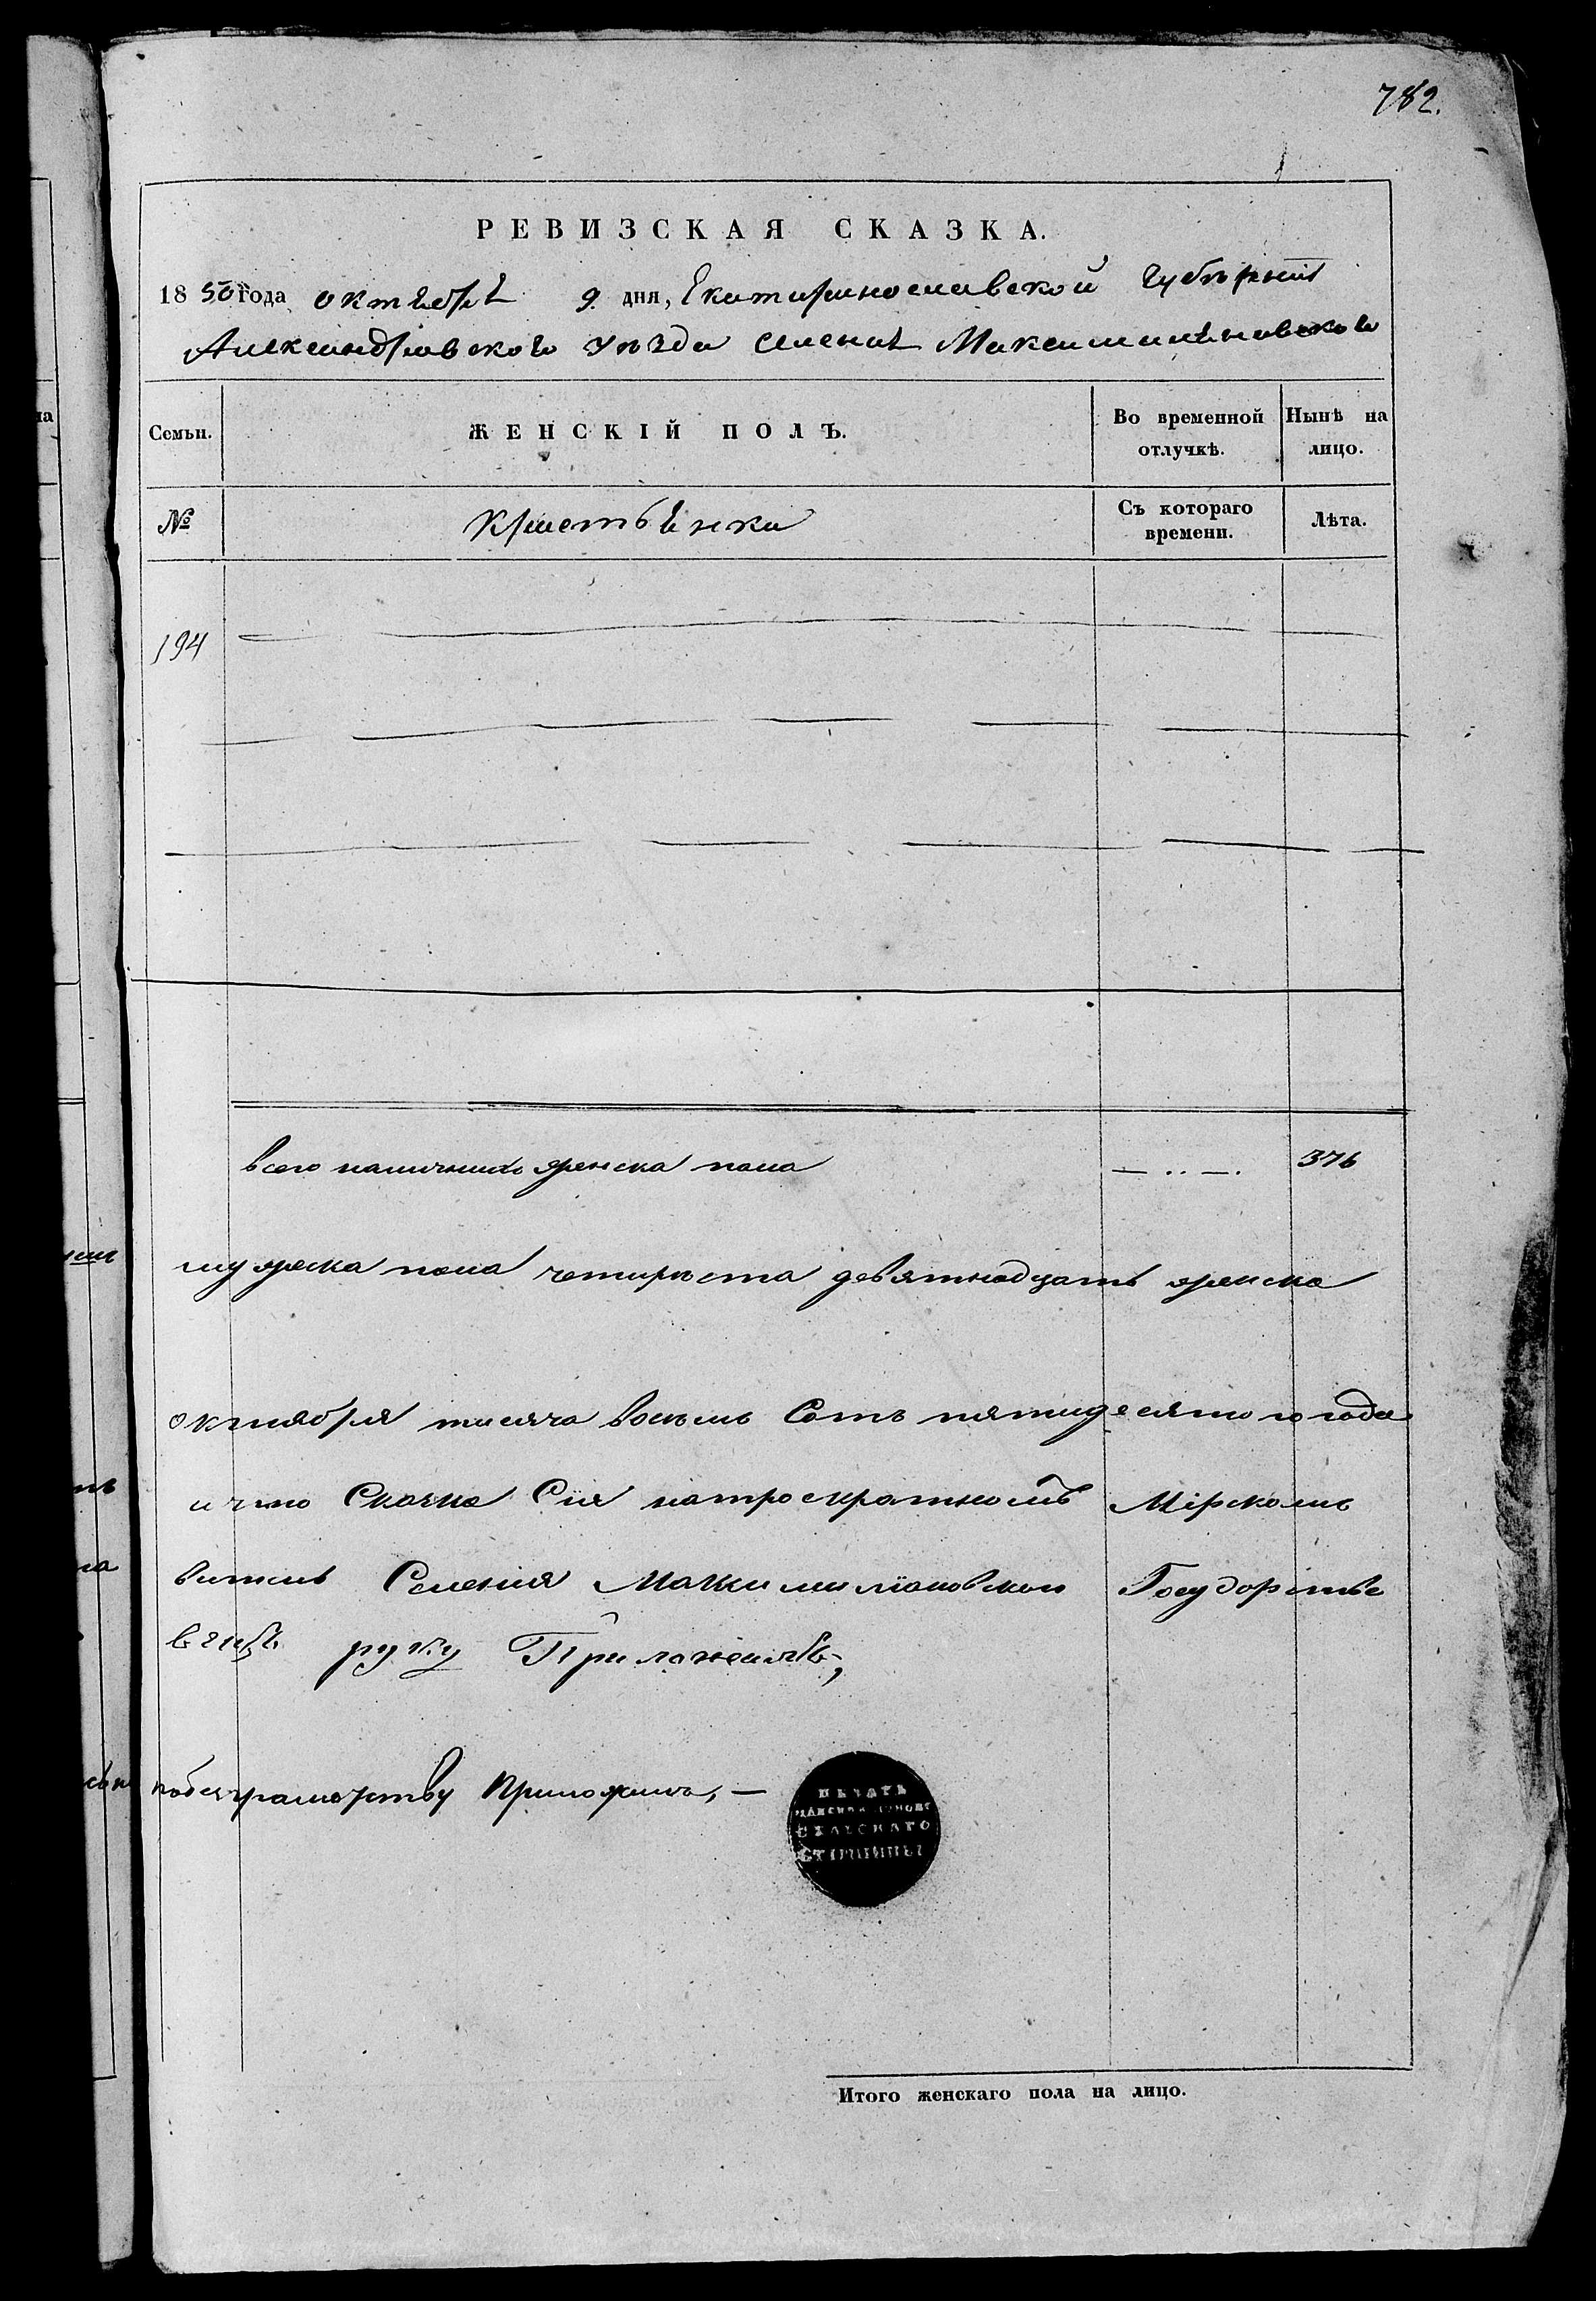 782.
РЕВИЗСКАЯ СКАЗКА.
1850 года октября 9 дня, Екатиринославской губѣрнии
Александровского уѣзда селения Максимилияновского
Семьи.
ЖЕНСКІЙ ПОЛЪ.
Во временной отлучкѣ.
Нынѣ на лицо.
№
Кристьянки
Съ котораго времени.
Лѣта.
194
всего наличныхъ женска пола — .. — . 376
мужеска пола четыриста девятнадцать женска
октября тисяча восемь сотъ пятидесятого года
и что Сказка Сия натроекратномъ Мірскомъ
Селения Максимилиановкои Государстве
руку Приложилъ,
побезграмотству Приложилъ, —
ПЕЧАТЬ
СЕЛЬСКАГО
СТАРШИНЫ
Итого женскаго пола на лицо.